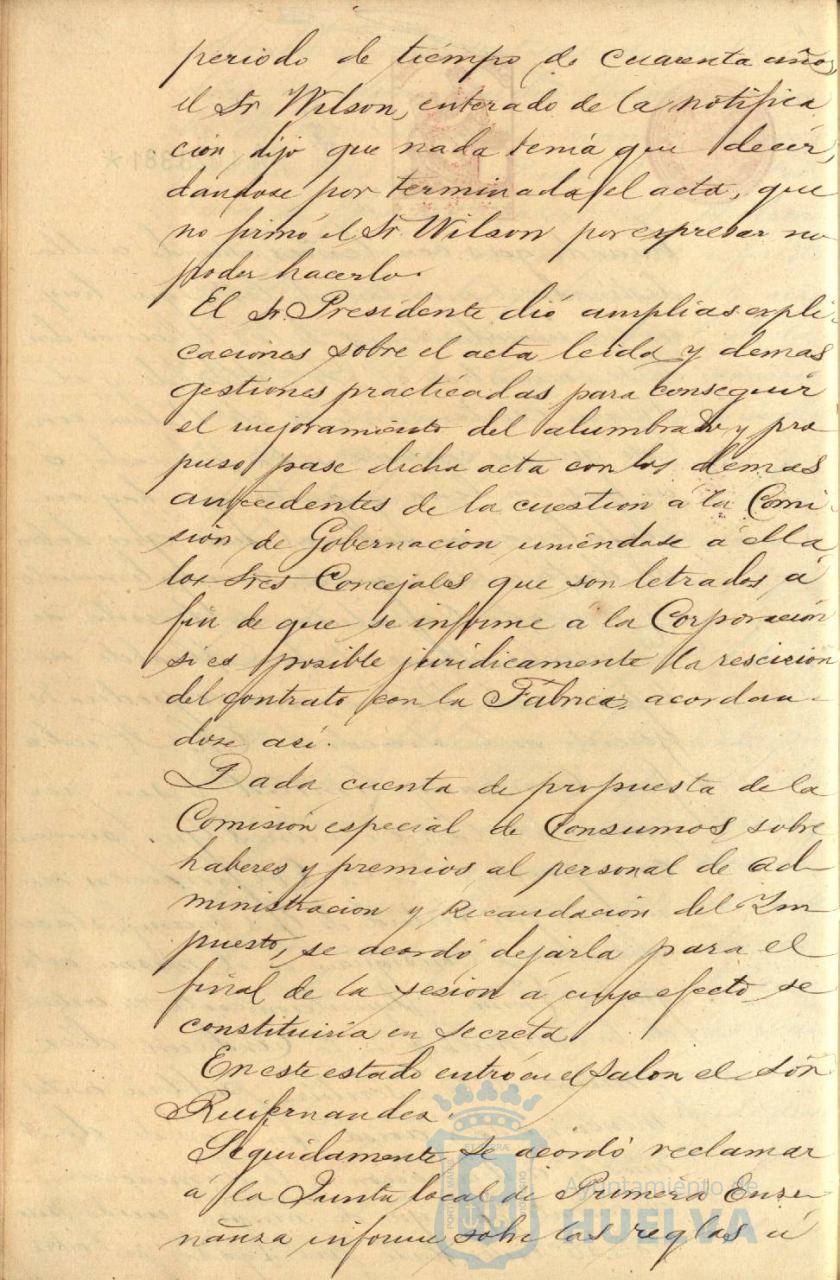 periodo de tiempo de cuarenta años,
el Sr Wilson, enterado de la notifica
ción, dijo que nada tenía que decir,
dandose por terminada el acta, que
no firmó el Sr. Wilson por espresar no
poder hacerlo.
El Sr. Presidente dió amplias expli-
caciones sobre el acta leida y demas
gestiones practicadas para conseguir
el mejoramiento del alumbrado y pro
puso pase dicha acta con los demas
antecedentes de la cuestion á la Comi-
sión de Gobernación uniéndose á ella
los Sres Concejales que son letrados, á
fin de que se informe á la Corporación
si es posible juridicamente la rescición
del contrato con la Fabrica, acordan-
dose así.
Dada cuenta de propuesta de la
Comisión especial de Consumos, sobre
haberes y premios al personal de ad-
ministracion y Recaudación del Im
puesto, se acordó dejarla para el
final de la sesión á cuyo efecto se
constituiría en secreta
En este estado entró en el Salon el Sõn
Ruifernandez.
Seguidamente se acordó reclamar
á la Junta local de Primera Ense-
ñanza informe sobre las reglas á
Ayuntamiento de
HUELVA